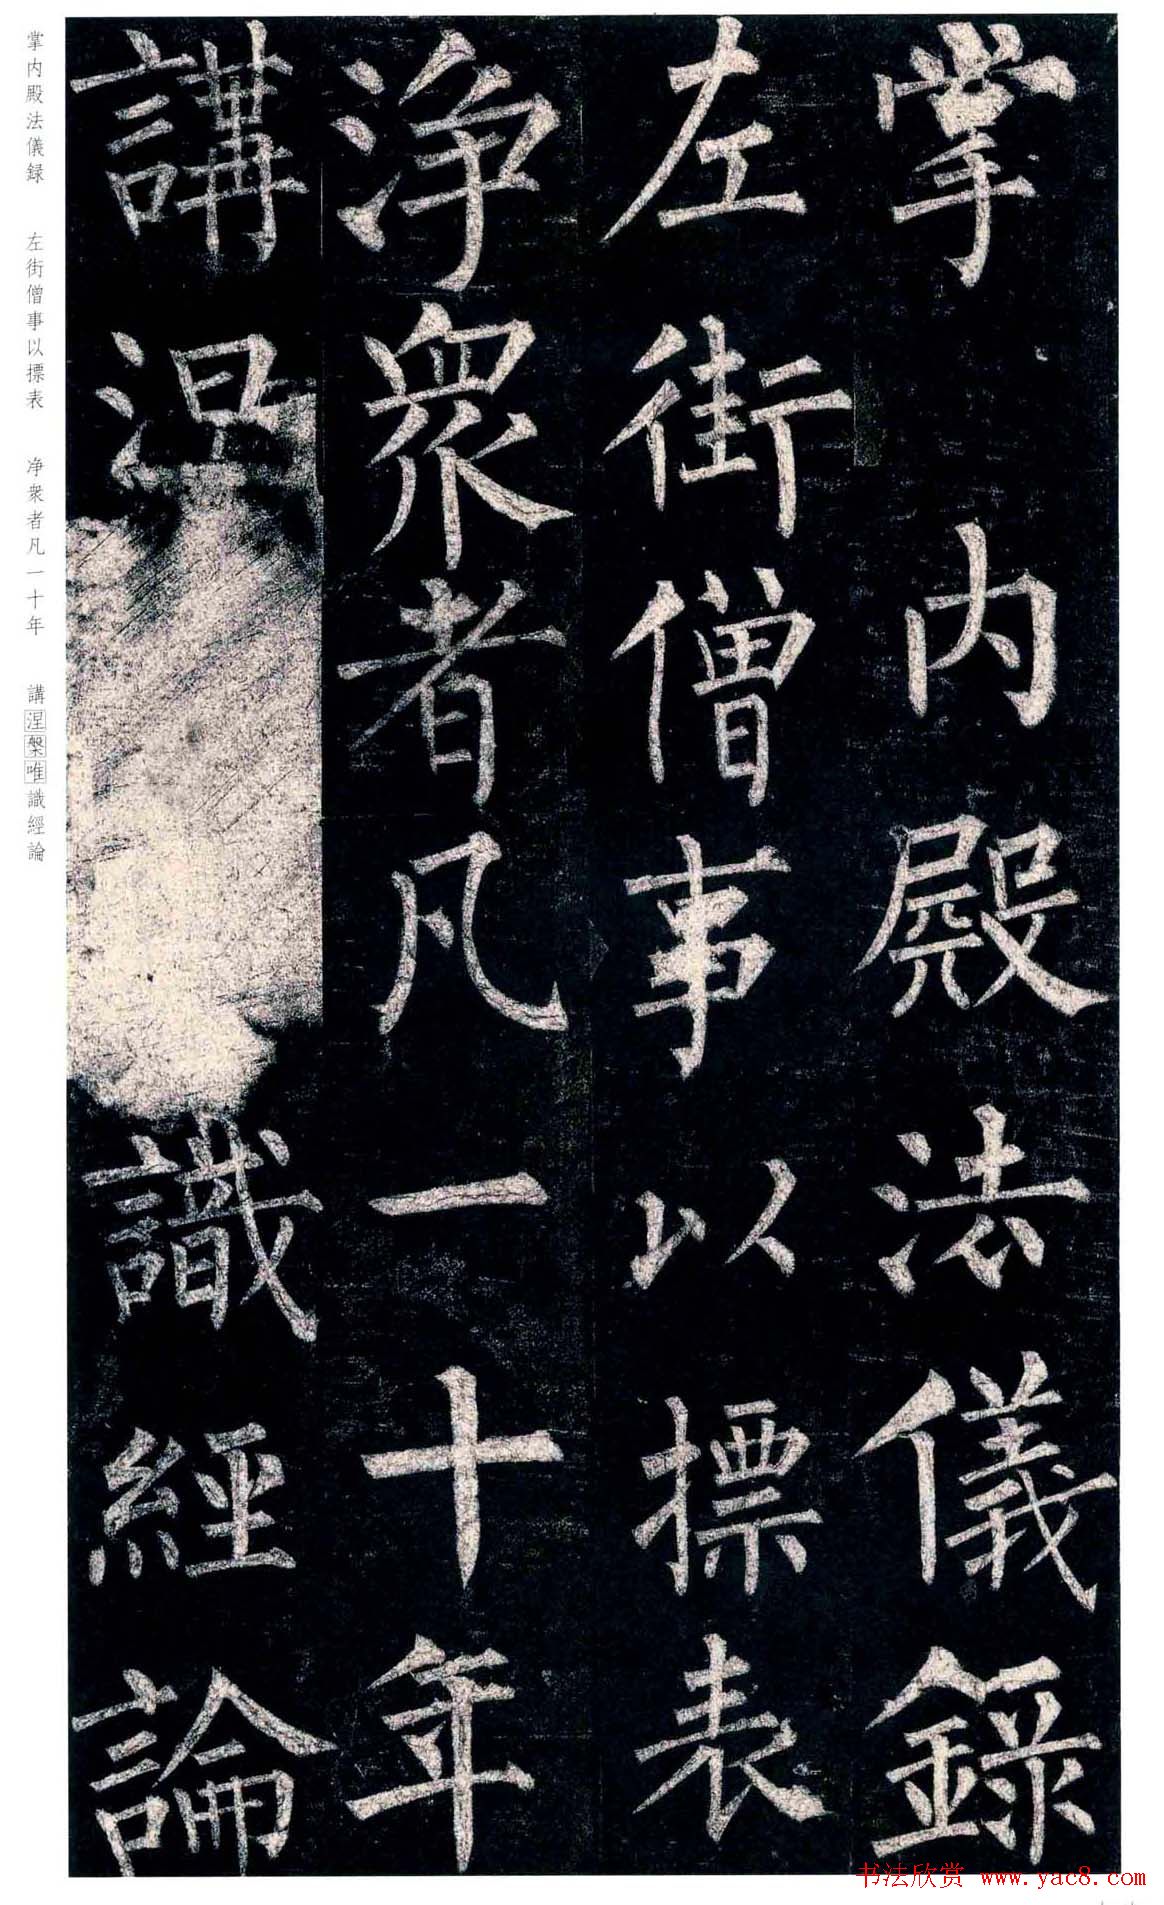 掌內殿法儀錄
左街僧事以摽表
淨衆者凡一十年
講涅識經論
掌内殿法儀録 左街僧事以摽表 净衆者凡一十年 講涅槃唯識經論
书法欣赏 www.yac8.com